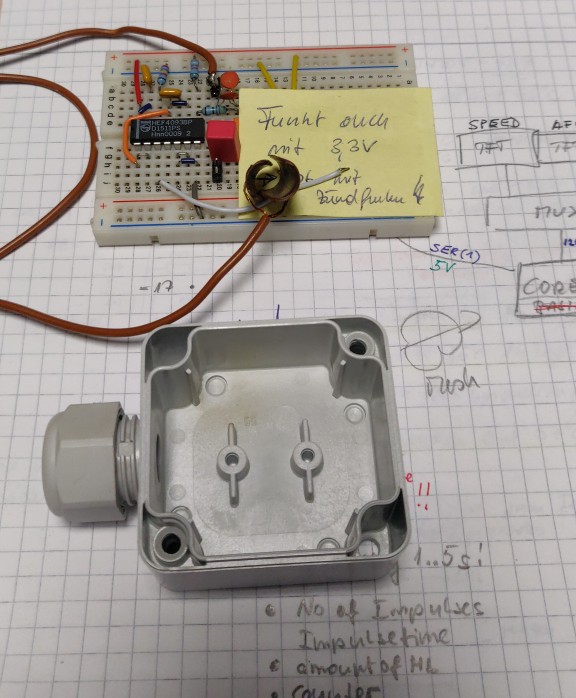 HEF4093BP
D1511PS
Hnn0009 2
Funkt auch
mit 3,3V
mit
Zündfunken
SPEED
TFT
AF
TFT
MUX
SER(1)
5V
CORE
-17
!!
1..5s!
No of Impulses
Impulsetime
amount of HL
Counter